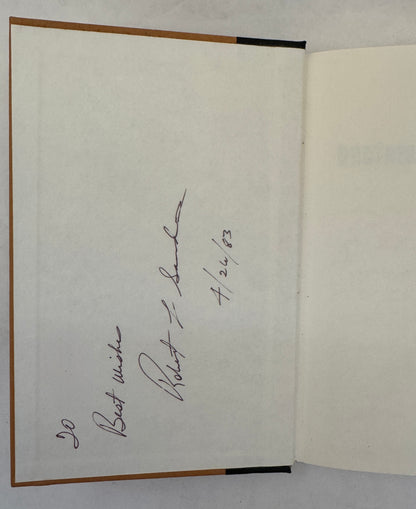 To
Best Wishes
Robert L
4/26/83